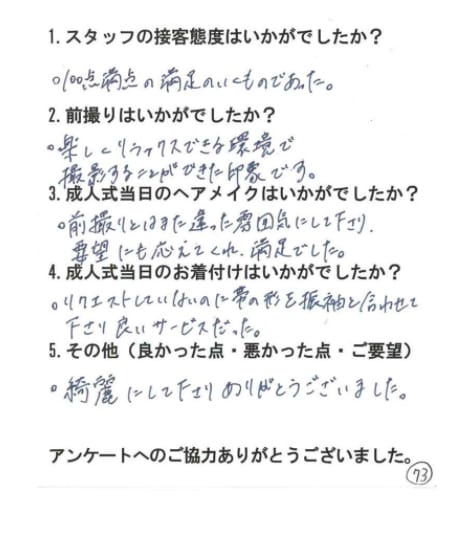 1.スタッフの接客態度はいかがでしたか？
○100点満点の満足のいくものであった。
2.前撮りはいかがでしたか？
○楽しくリラックスできる環境で
撮影することができた印象です。
3.成人式当日のヘアメイクはいかがでしたか？
○前撮りとはまた違った雰囲気にして下さり、
要望にも応えてくれ、満足でした。
4.成人式当日のお着付けはいかがでしたか？
○リクエストしていないのに帯の形を振袖と合わせて
下さり良いサービスだった。
5.その他（良かった点・悪かった点・ご要望）
○綺麗にして下さりありがとうございました。
アンケートへのご協力ありがとうございました。
73